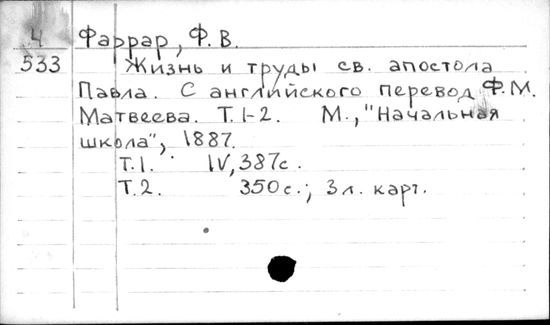 4 Фаррар, Ф. В.
533 Жизнь и труды св. апостола
Павла. С английского перевод Ф.М.
Матвеева. Т.1-2. М., "Начальная
школа", 1887.
Т.1. IV, 387с.
Т.2. 350с.; 3л. карт.